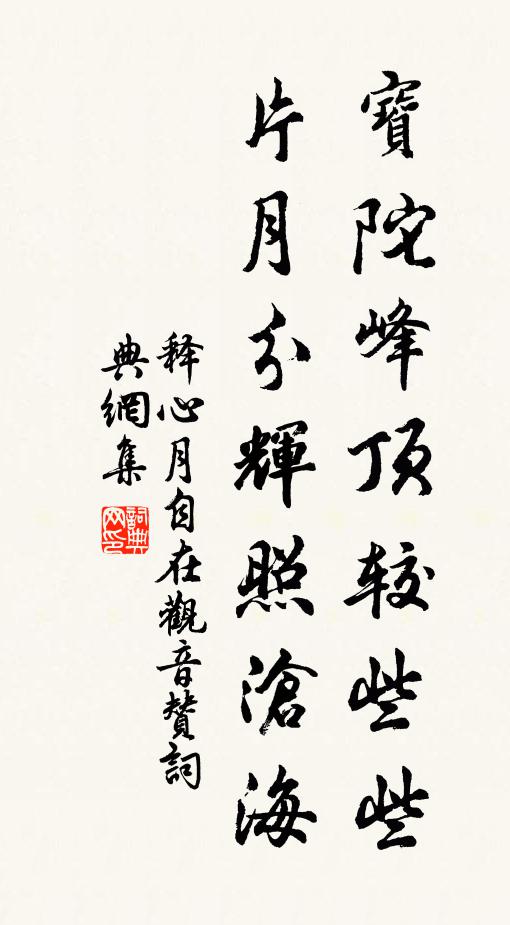 寶陀峰顶较些些
片月分輝照滄海
释心月自在觀音赞詞
典網集
詞典网印